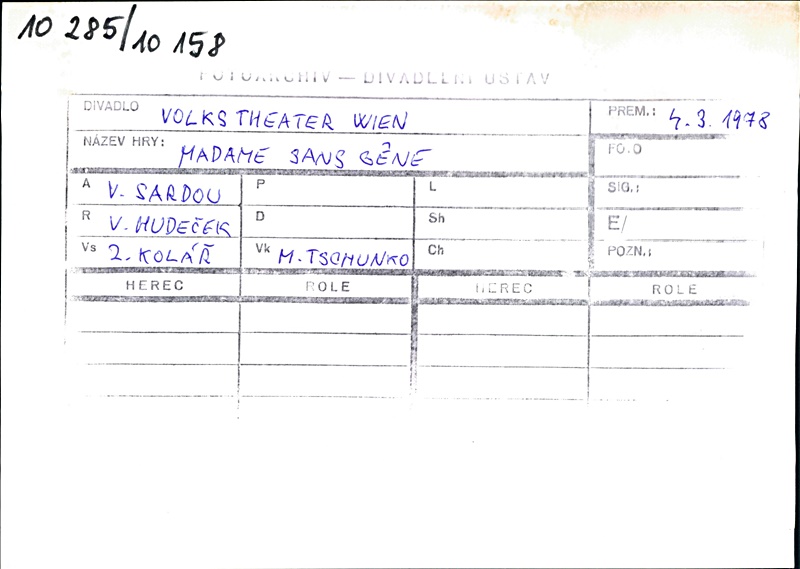 10 285/10 158
FOTOARCHIV — DIVADELNÍ ÚSTAV
DIVADLO VOLKSTHEATER WIEN PREM.: 4.3.1978
NÁZEV HRY: MADAME SANS GÊNE FOTO
A V. SARDOU P L SIG.:
R V. HUDEČEK D Sh E/
Vs Z. KOLÁŘ Vk M. TSCHUNKO Ch POZN.:
HEREC ROLE HEREC ROLE